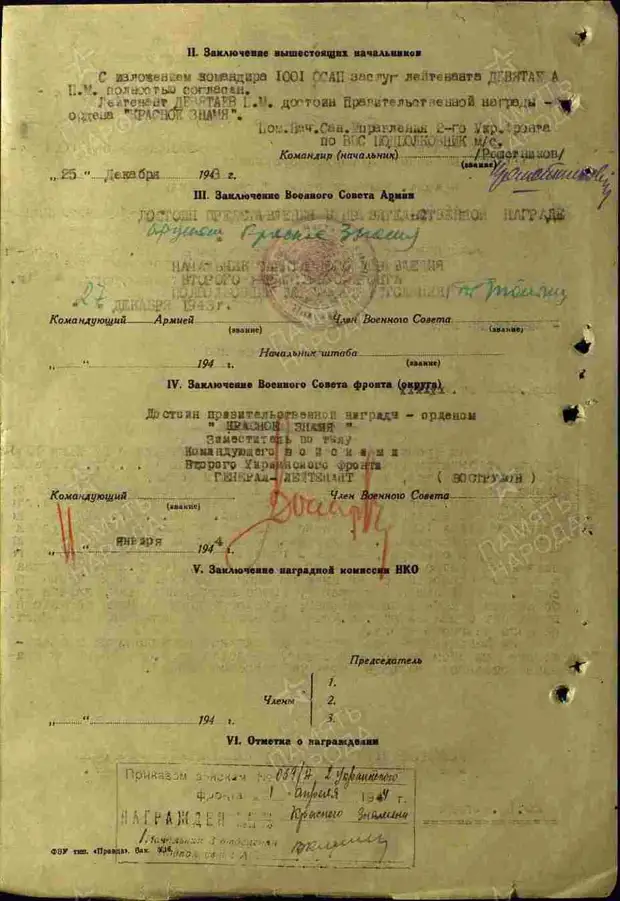 II. Заключение вышестоящих начальников
С изложением командира 1001 ОСАП заслуг лейтенанта
П.М. полностью согласан.
Лейтенант ДЕВЯТАЕВ П.М. достоин Правительственной награды -
ордена "КРАСНОЕ ЗНАМЯ".
Пом.Нач.Сан.Управления 2-го Укр.Фронта
по ВВС ПОДПОЛКОВНИК м/с.
Командир (начальник) /Решетников/
(звание)
„25" Декабря 1943 г.
III. Заключение Военного Совета Армии
ДОСТОИН ПРЕДСТАВЛЕНИЯ К ПРАВИТЕЛЬСТВЕННОЙ НАГРАДЕ
Красное Знамя
НАЧАЛЬНИК УПРАВЛЕНИЯ
ВТОРОГО ФРОНТА
27 ДЕКАБРЯ 1943 г.
Командующий Армией Член Военного Совета
(звание) (звание)
Начальник штаба
„ " 194 г. (звание)
IV. Заключение Военного Совета фронта (округа)
Достоин правительственной награды - орденом
" КРАСНОЕ ЗНАМЯ "
Заместитель по тылу
Командующего войсками
Второго Украинского фронта
ГЕНЕРАЛ-ЛЕЙТЕНАНТ ( ВОСТРУХОВ )
Командующий Член Военного Совета
(звание) (звание)
„ " января 1944 г.
V. Заключение наградной комиссии НКО
Председатель
1.
Члены 2.
„ " 194 г. 3.
VI. Отметка о награждении
Приказом войскам № 039/н 2 Украинского
фронта 1 апреля 1944 г.
НАГРАЖДЕН Красного Знамени
Начальник отделения
ФВУ тип. «Правда». Зак.
ПАМЯТЬ НАРОДА